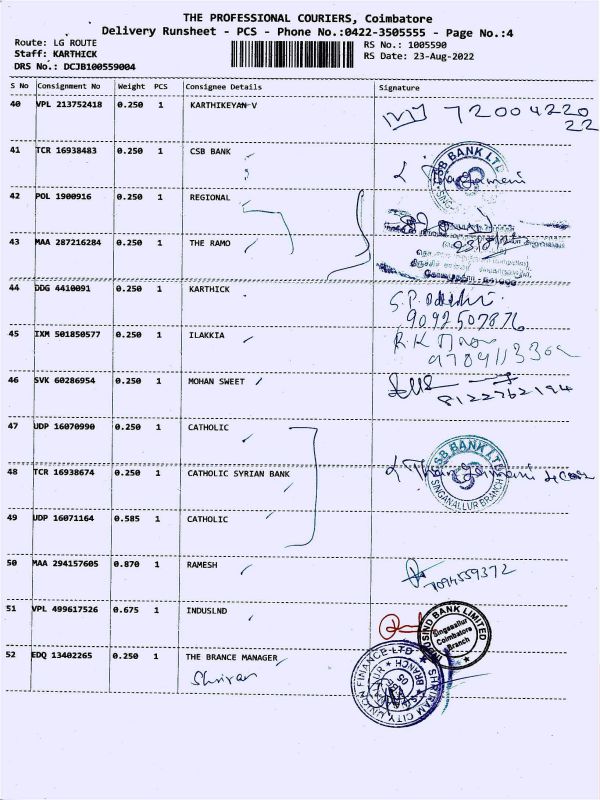 THE PROFESSIONAL COURIERS, Coimbatore
Delivery Runsheet - PCS - Phone No.:0422-3505555 - Page No.:4
Route: LG ROUTE
Staff: KARTHICK
DRS No.: DCJB100559004
RS No.: 1005590
RS Date: 23-Aug-2022
S No Consignment No Weight PCS Consignee Details Signature
40 VPL 213752418 0.250 1 KARTHIKEYAN V 72004220
22
41 TCR 16938483 0.250 1 CSB BANK
CSB BANK LTD
42 POL 1900916 0.250 1 REGIONAL
43 MAA 287216284 0.250 1 THE RAMO
44 DDG 4410091 0.250 1 KARTHICK
9092507876
45 IXM 501850577 0.250 1 ILAKKIA R.K
46 SVK 60286954 0.250 1 MOHAN SWEET
8122762194
47 UDP 16070990 0.250 1 CATHOLIC
48 TCR 16938674 0.250 1 CATHOLIC SYRIAN BANK
CSB BANK LTD
SINGANALLUR BRANCH
49 UDP 16071164 0.585 1 CATHOLIC
50 MAA 294157605 0.870 1 RAMESH
51 VPL 499617526 0.675 1 INDUSLND
INDUSIND BANK LIMITED
Singanallur
Coimbatore
Branch
52 EDQ 13402265 0.250 1 THE BRANCE MANAGER
Shriram
SHRIRAM CITY UNION FINANCE LTD